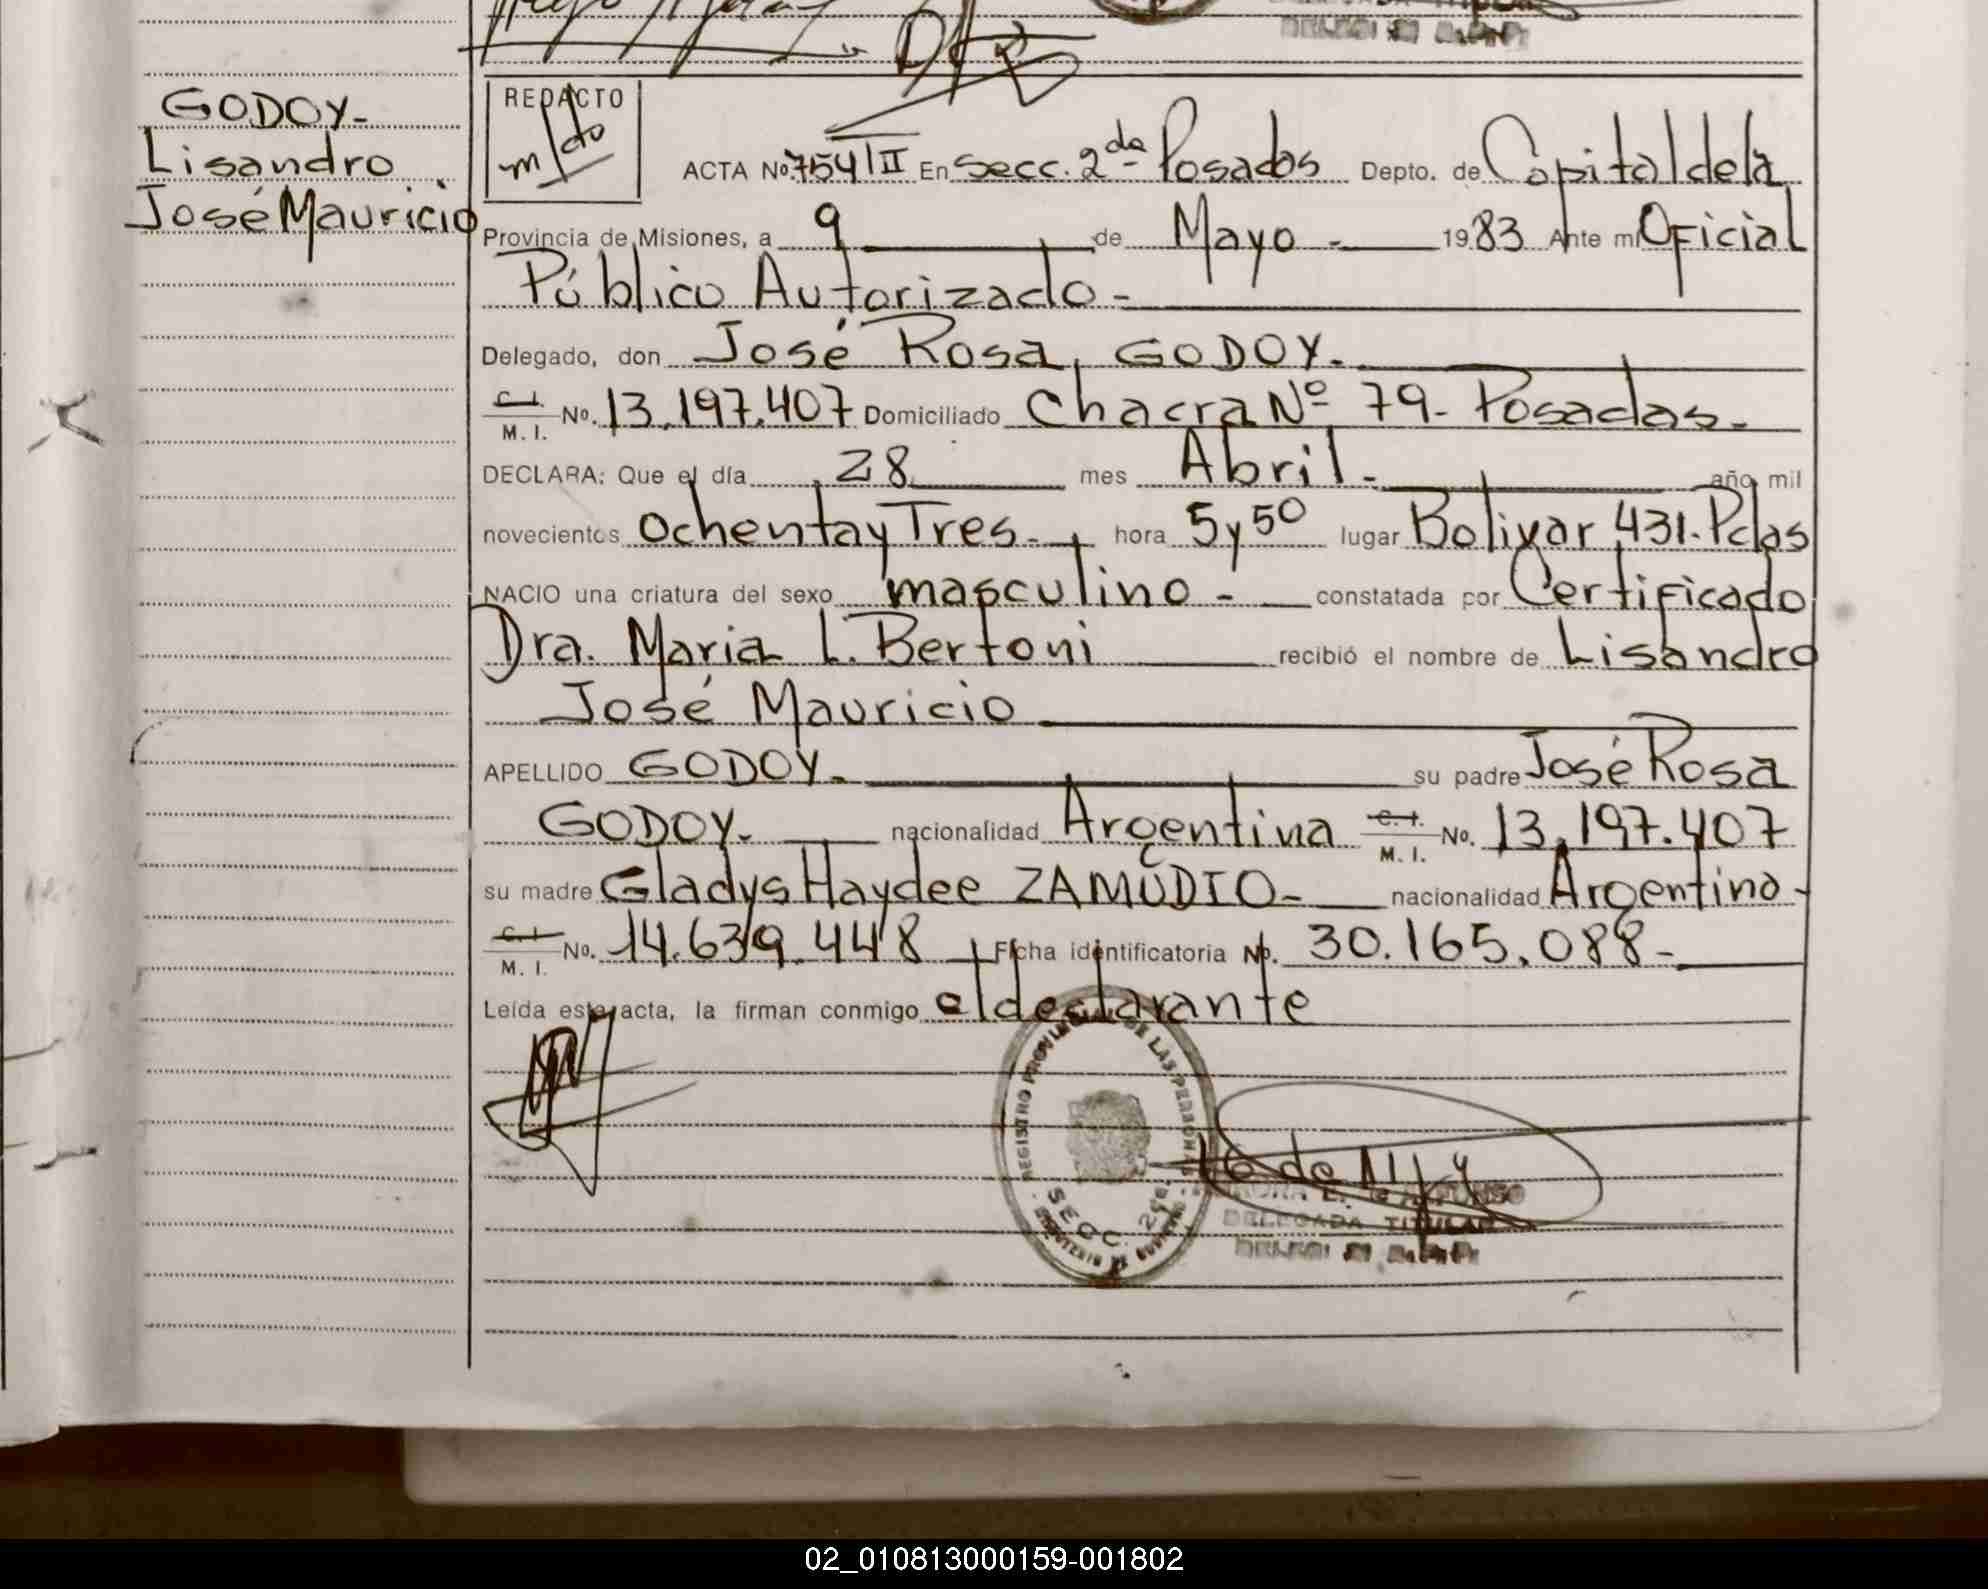 GODOY-
Lisandro
José Mauricio
REDACTO
ACTA No. 754 T II En Secc. 2da Posadas Depto. de Capital de la
Provincia de Misiones, a 9 de Mayo - 1983 Ante mi Oficial
Público Autorizado -
Delegado, don José Rosa, GODOY.
C.I. M. I. No. 13.197.407 Domiciliado Chacra Nº 79- Posadas.
DECLARA: Que el día 28 mes Abril - año mil
novecientos ochenta y Tres. - hora 5 y 50 lugar Bolivar 431. Pdas
NACIO una criatura del sexo masculino - constatada por Certificado
Dra. Maria L. Bertoni recibió el nombre de Lisandro
José Mauricio
APELLIDO GODOY. su padre José Rosa
GODOY. nacionalidad Argentina C. I. M. I. No. 13.197.407
su madre Gladys Haydee ZAMUDIO - nacionalidad Argentina -
C. I. M. I. No. 14.639.448 Ficha identificatoria No. 30.165.088 -
Leída este acta, la firman conmigo el declarante
REGISTRO PROVINCIAL DE LAS PERSONAS
SECC. 2da.
DELEGADA TITULAR
02_010813000159-001802